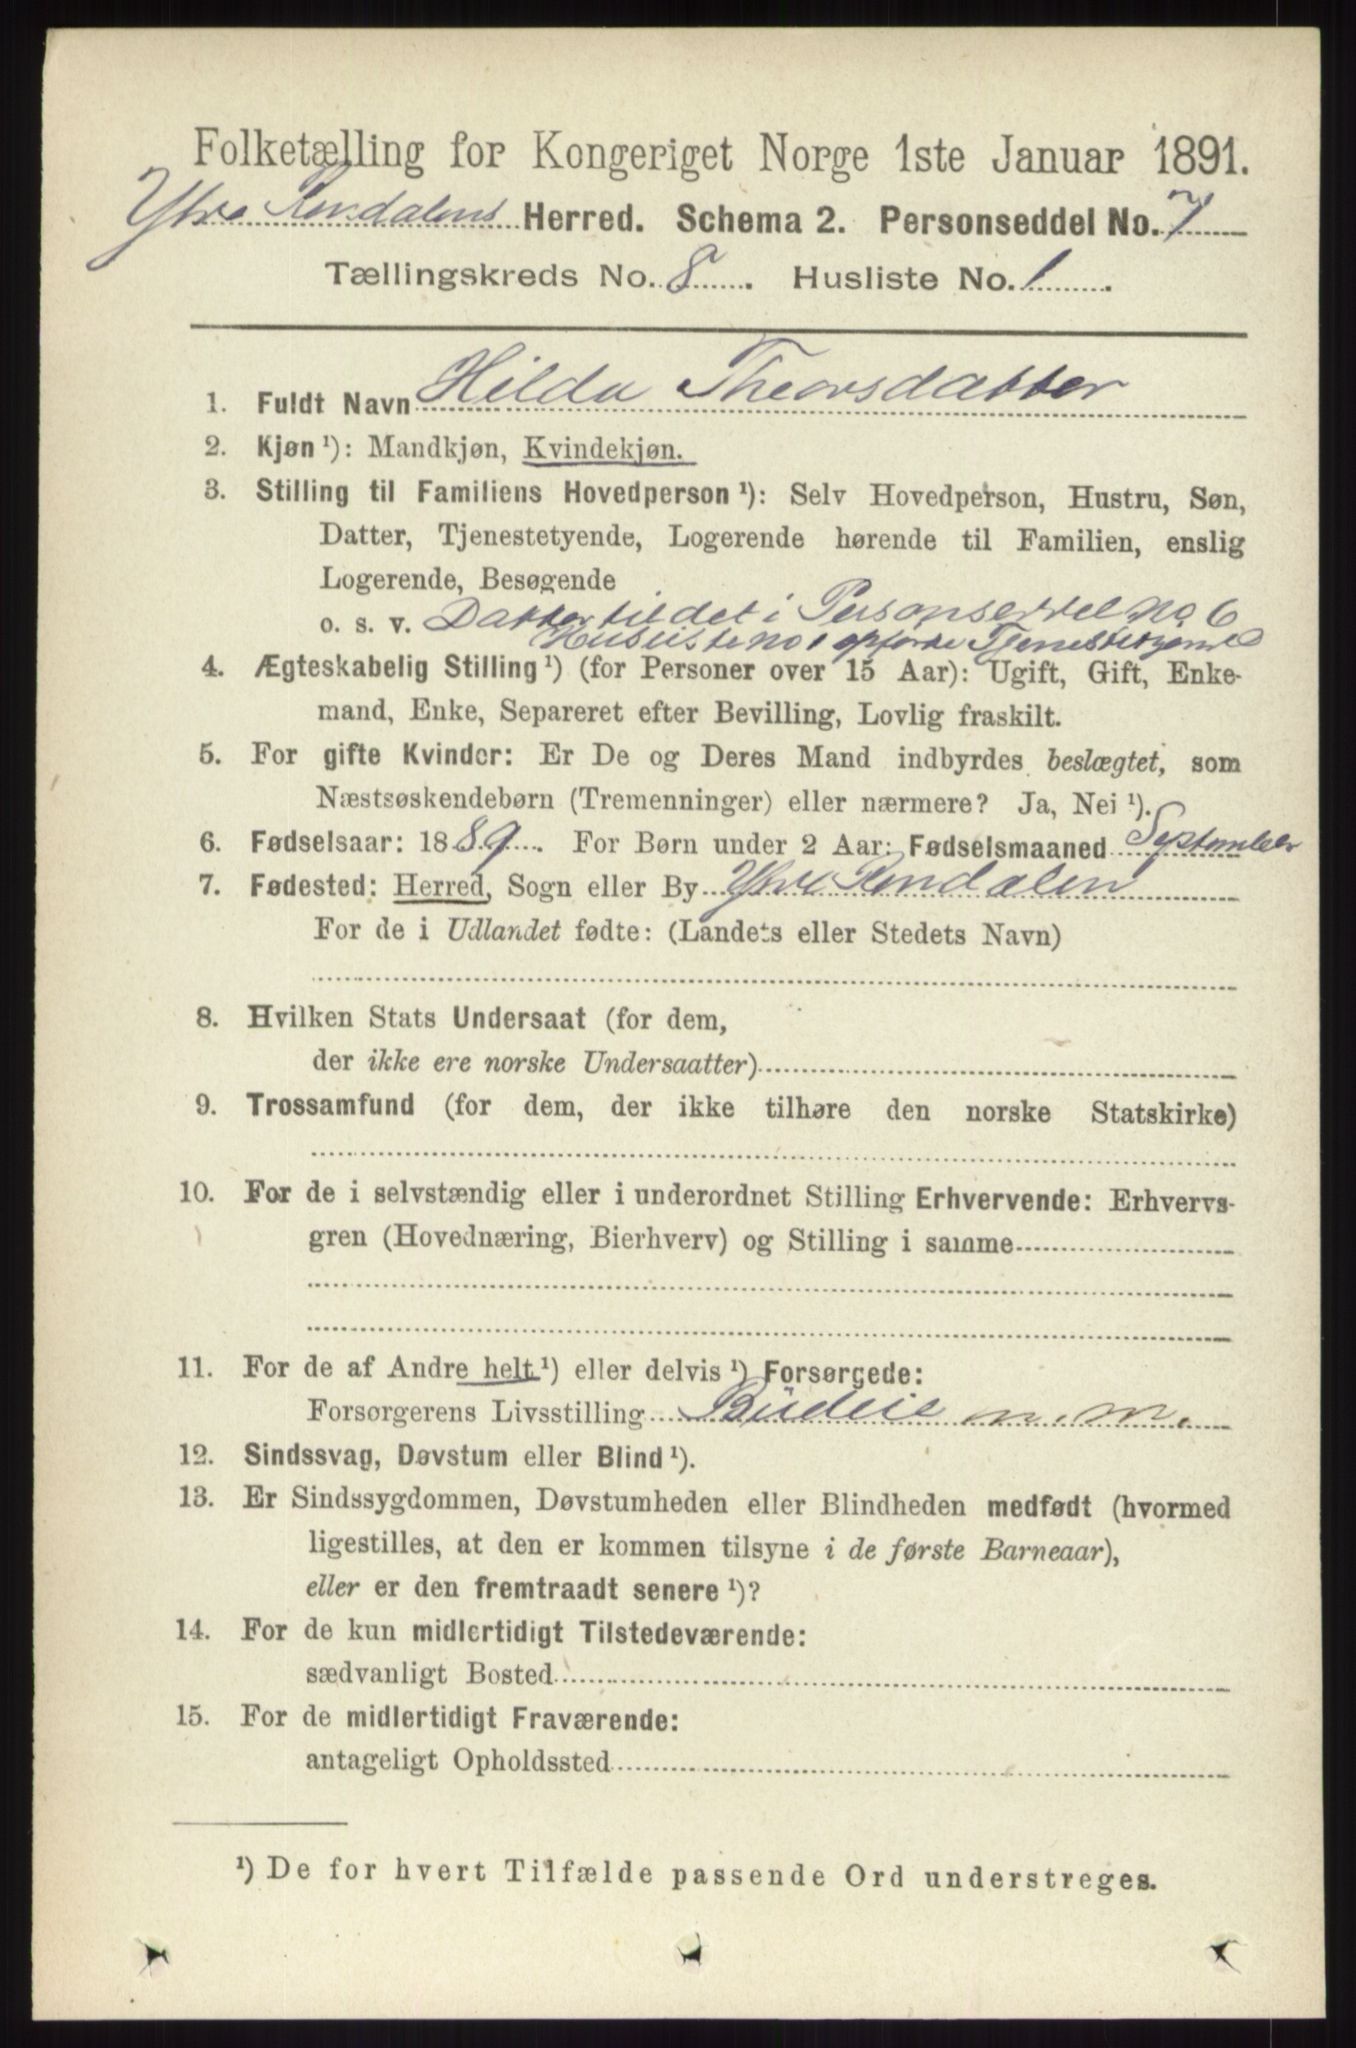 Folketælling for Kongeriget Norge 1ste Januar 1891.
Ytre Rendalens Herred. Schema 2. Personseddel No. 7
Tællingskreds No. 8. Husliste No. 1.
1. Fuldt Navn Hilda Theorsdatter
2. Kjøn ¹): Mandkjøn, Kvindekjøn.
3. Stilling til Familiens Hovedperson ¹): Selv Hovedperson, Hustru, Søn,
Datter, Tjenestetyende, Logerende hørende til Familien, enslig
Logerende, Besøgende
o. s. v. Datter til det i Personseddel No 6
Husliste no 1 opførte Tjenestetyende
4. Ægteskabelig Stilling ¹) (for Personer over 15 Aar): Ugift, Gift, Enke-
mand, Enke, Separeret efter Bevilling, Lovlig fraskilt.
5. For gifte Kvinder: Er De og Deres Mand indbyrdes beslægtet, som
Næstsøskendebørn (Tremenninger) eller nærmere? Ja, Nei ¹).
6. Fødselsaar: 1889. For Børn under 2 Aar: Fødselsmaaned September
7. Fødested: Herred, Sogn eller By Ytre Rendalen
For de i Udlandet fødte: (Landets eller Stedets Navn)
8. Hvilken Stats Undersaat (for dem,
der ikke ere norske Undersaatter)
9. Trossamfund (for dem, der ikke tilhøre den norske Statskirke)
10. For de i selvstændig eller i underordnet Stilling Erhvervende: Erhvervs-
gren (Hovednæring, Bierhverv) og Stilling i samme
11. For de af Andre helt ¹) eller delvis ¹) Forsørgede:
Forsørgerens Livsstilling Budeie m. m.
12. Sindssvag, Døvstum eller Blind ¹).
13. Er Sindssygdommen, Døvstumheden eller Blindheden medfødt (hvormed
ligestilles, at den er kommen tilsyne i de første Barneaar),
eller er den fremtraadt senere ¹)?
14. For de kun midlertidigt Tilstedeværende:
sædvanligt Bosted
15. For de midlertidigt Fraværende:
antageligt Opholdssted
¹) De for hvert Tilfælde passende Ord understreges.